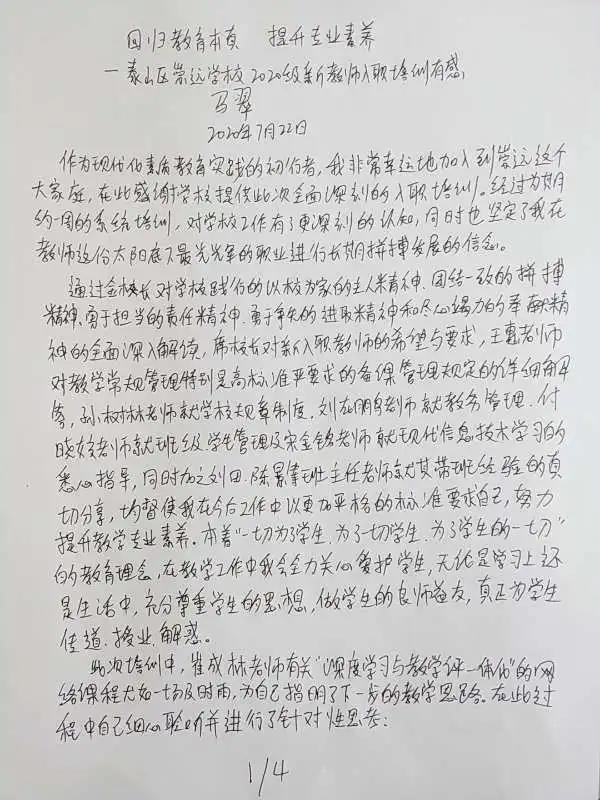 回归教育本真 提升专业素养
—泰山区崇远学校2020级新教师入职培训有感
马翠
2020年7月22日
作为现代化素质教育实践的初行者,我非常幸运地加入到崇远这个
大家庭,在此感谢学校提供此次全面深刻的入职培训。经过为期
约一周的系统培训,对学校工作有了更深刻的认知,同时也坚定了我在
教师这份太阳底下最光辉的职业进行长期拼搏发展的信念。
通过金校长对学校践行的以校为家的主人翁精神、团结一致的拼搏
精神、勇于担当的责任精神、勇于争先的进取精神和尽心竭力的奉献精
神的全面深入解读,席校长对新入职教师的希望与要求,王惠老师
对教学常规管理特别是高标准严要求的备课管理规定的详细解
答,孙树林老师就学校规章制度,刘在朋老师就教务管理、付
晓姣老师就班级、学生管理及宋金铭老师就现代信息技术学习的
悉心指导,同时加之刘田、陈景肇班主任老师就其带班经验的真
切分享,均督使我在今后工作中以更加严格的标准要求自己,努力
提升教学专业素养。本着“一切为了学生、为了一切学生、为了学生的一切”
的教育理念,在教学工作中我会全力关心爱护学生,无论是学习上还
是生活中,充分尊重学生的思想,做学生的良师益友,真正为学生
传道、授业、解惑。
此次培训中,崔成林老师有关“深度学习与教学评一体化”的网
络课程尤如一场及时雨,为自己指明了下一步的教学思路。在此过
程中自己细心聆听并进行了针对性思考:
1/4